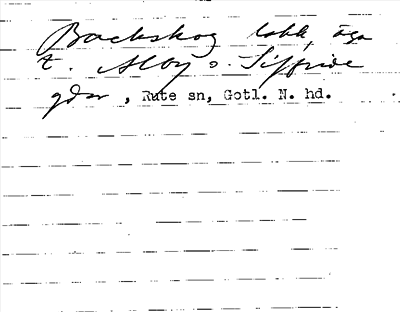 Backskog lokk, äga
t. Alby o. Siffride
gdar, Rute sn, Gotl. N. hd.